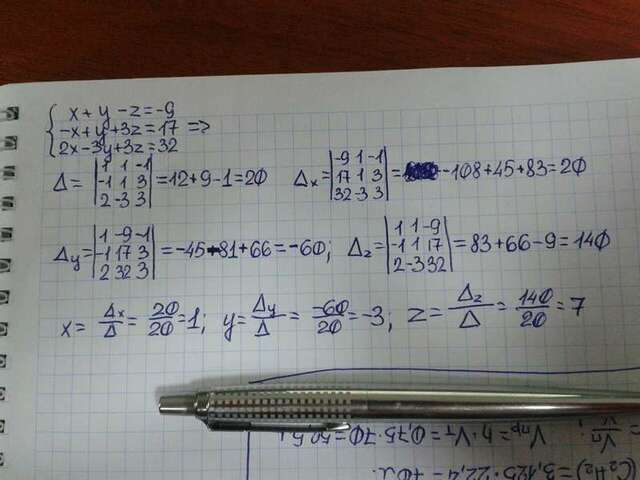 x + y - z = -9
-x + y + 3z = 17 =>
2x - 3y + 3z = 32
Δ = |1 1 -1; -1 1 3; 2 -3 3| = 12 + 9 - 1 = 20 Δx = |-9 1 -1; 17 1 3; 32 -3 3| = -108 + 45 + 83 = 20
Δy = |1 -9 -1; -1 17 3; 2 32 3| = -45 - 81 + 66 = -60; Δz = |1 1 -9; -1 1 17; 2 -3 32| = 83 + 66 - 9 = 140
x = Δx/Δ = 20/20 = 1; y = Δy/Δ = -60/20 = -3; z = Δz/Δ = 140/20 = 7
(C₂H₂) = 3,125 · 22,4 = 70л.
Vпр = η · Vт = 0,75 · 70 =